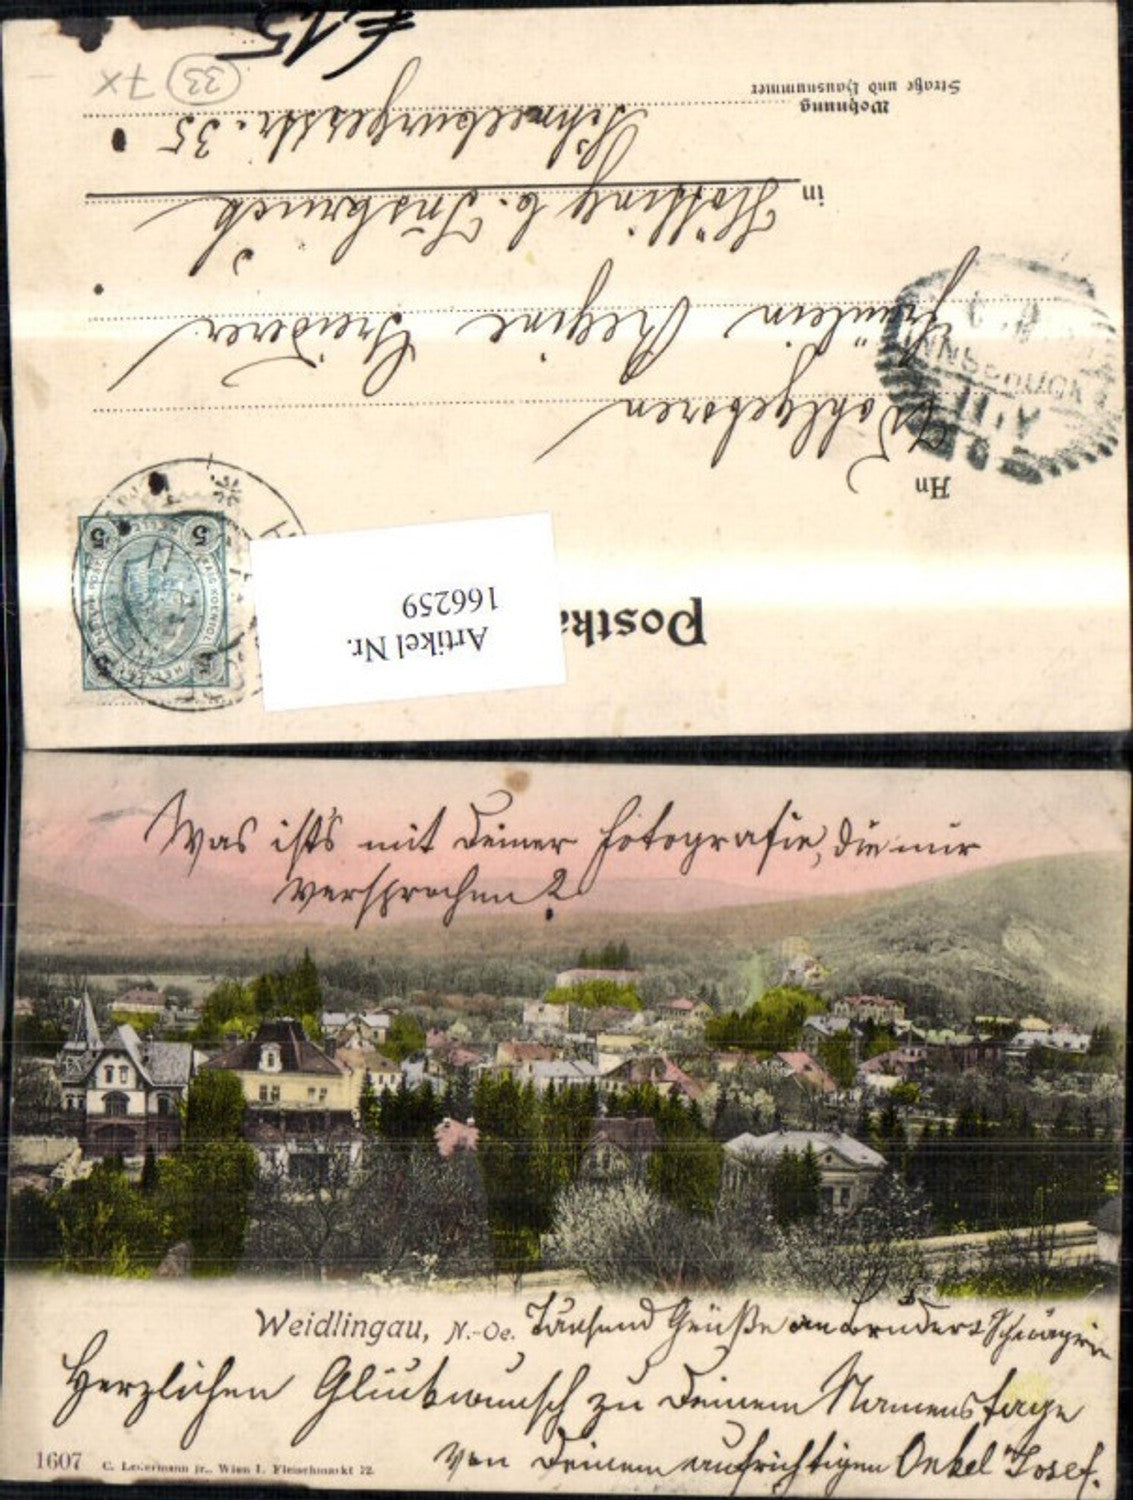 € 15
33
7x
Straße und Hausnummer
Wohnung
Schneeburgerstr. 35
in
Hötting b. Insbruck
Fräulein Regine Greiderer
Wohlgeboren
An
INNSBRUCK
5 5
Postka
Artikel Nr.
166259
Was ist's mit Deiner Fotografie, die mir
versprochen?
Weidlingau, N.-Oe. Tausend Grüße an Bruder & Schwägerin
Herzlichen Glückwunsch zu Deinem Namenstage
von Deinem aufrichtigen Onkel Josef.
1607 C. Ledermann jr., Wien I. Fleischmarkt